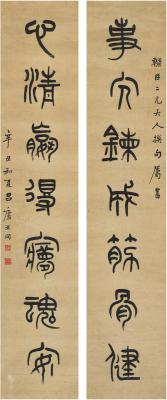 事宂鍊成筋骨健
心清贏得夢魂安
二兄大人撰句屬書
辛丑初夏吕